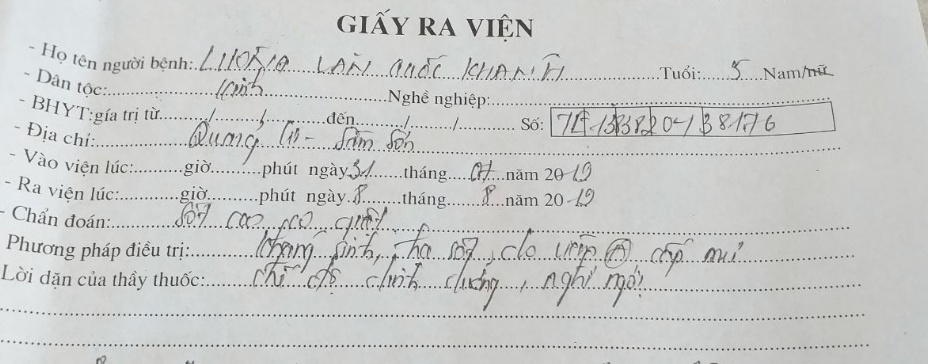 GIẤY RA VIỆN
- Họ tên người bệnh: VĂN QUỐC KHÁNH Tuổi: 5 Nam/nữ
- Dân tộc: Kinh Nghề nghiệp:
- BHYT:gía trị từ / / đến / / Số:
- Địa chỉ: Quảng Cư - Sầm Sơn
- Vào viện lúc: giờ phút ngày 31 tháng 07 năm 2019
- Ra viện lúc: giờ phút ngày 8 tháng 8 năm 2019
- Chẩn đoán: Sốt cao co giật
Phương pháp điều trị: Kháng sinh, hạ sốt,
Lời dặn của thầy thuốc: Chế độ dinh dưỡng, nghỉ ngơi